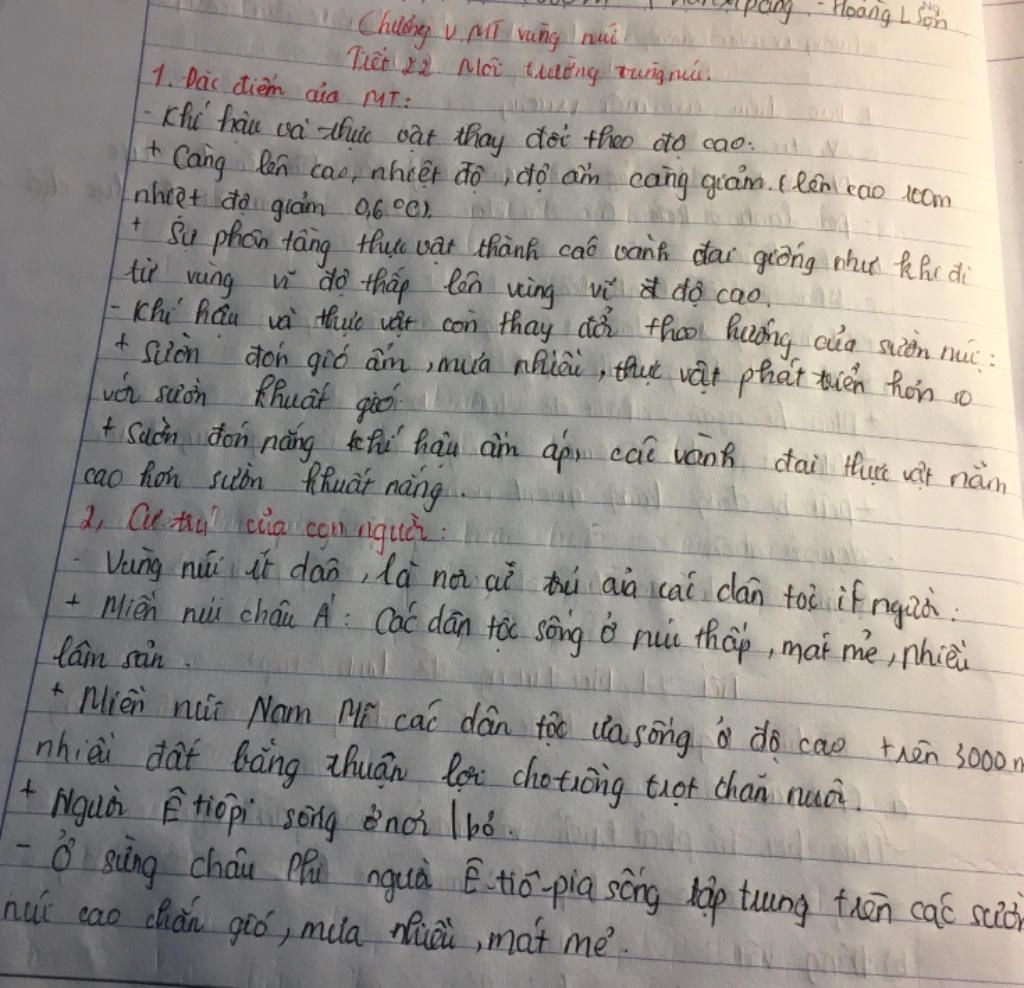 Phanxipăng - Hoàng L Sơn
Chương V MT vùng núi
Tiết 22 Môi trường vùng núi.
1. Đặc điểm của MT:
- Khí hậu và thực vật thay đổi theo độ cao:
+ Càng lên cao, nhiệt độ, độ ẩm càng giảm. (lên cao 100m
nhiệt độ giảm 0,6°C).
+ Sự phân tầng thực vật thành các vành đai giống như khi đi
từ vùng vĩ độ thấp lên vùng vĩ độ cao.
- Khí hậu và thực vật còn thay đổi theo hướng của sườn núi:
+ Sườn đón gió ẩm, mưa nhiều, thực vật phát triển hơn so
với sườn khuất gió.
+ Sườn đón nắng khí hậu ấm áp, các vành đai thực vật nằm
cao hơn sườn khuất nắng.
2, Cư trú của con người:
- Vùng núi ít dân, là nơi cư trú của các dân tộc ít người:
+ Miền núi châu Á: Các dân tộc sống ở núi thấp, mát mẻ, nhiều
lâm sản.
+ Miền núi Nam Mĩ các dân tộc ưa sống ở độ cao trên 3000m
nhiều đất bằng thuận lợi cho trồng trọt chăn nuôi.
+ Người Êtiôpi sống ở nơi
- Ở sừng châu Phi người Ê-tiô-pia sống tập trung trên các sườn
núi cao chắn gió, mưa nhiều, mát mẻ.